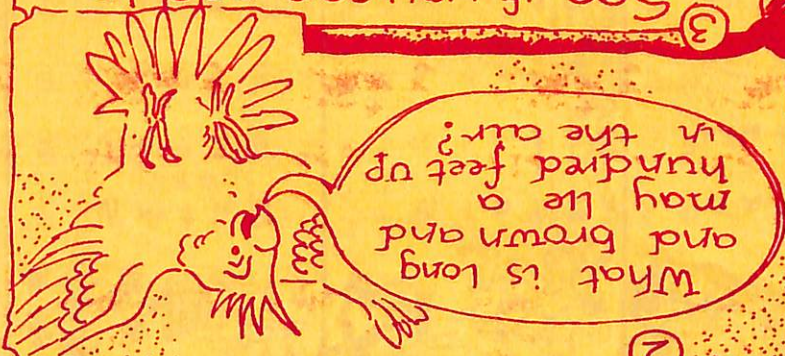 2
What is long
and brown and
may lie a
hundred feet up
in the air?
3